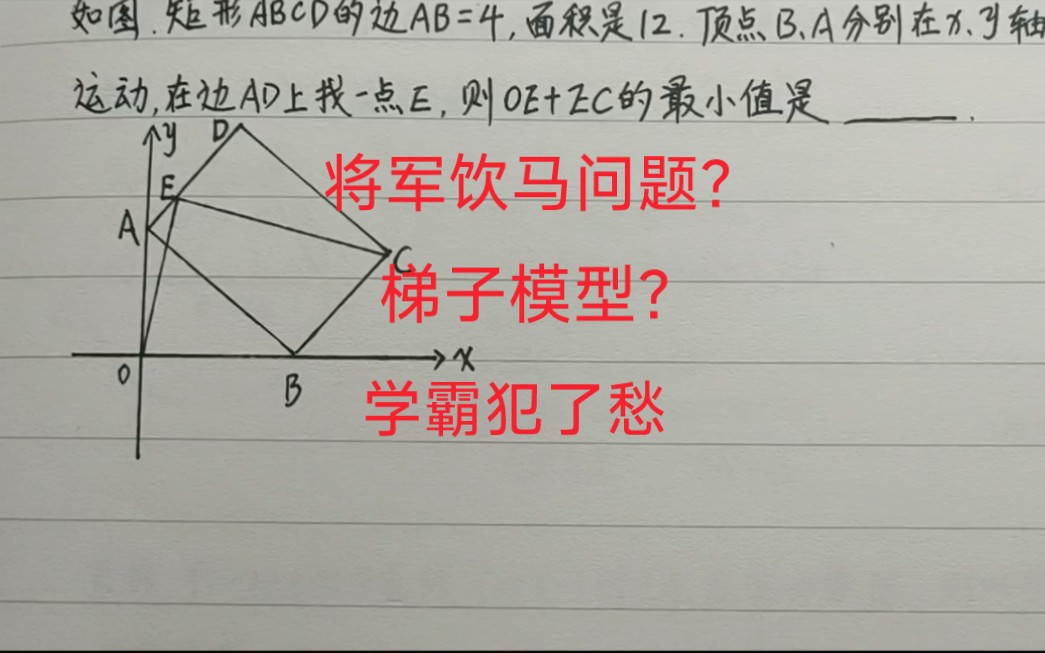 如图.矩形ABCD的边AB=4,面积是12.顶点B、A分别在x、y轴
运动,在边AD上找一点E,则OE+EC的最小值是____.
y
D
E
A
C
O
B
x
将军饮马问题?
梯子模型?
学霸犯了愁